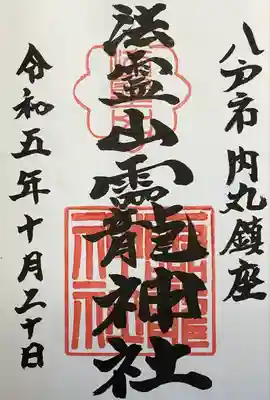 八戸市内丸鎮座
法霊山龗神社
令和五年十月二十日